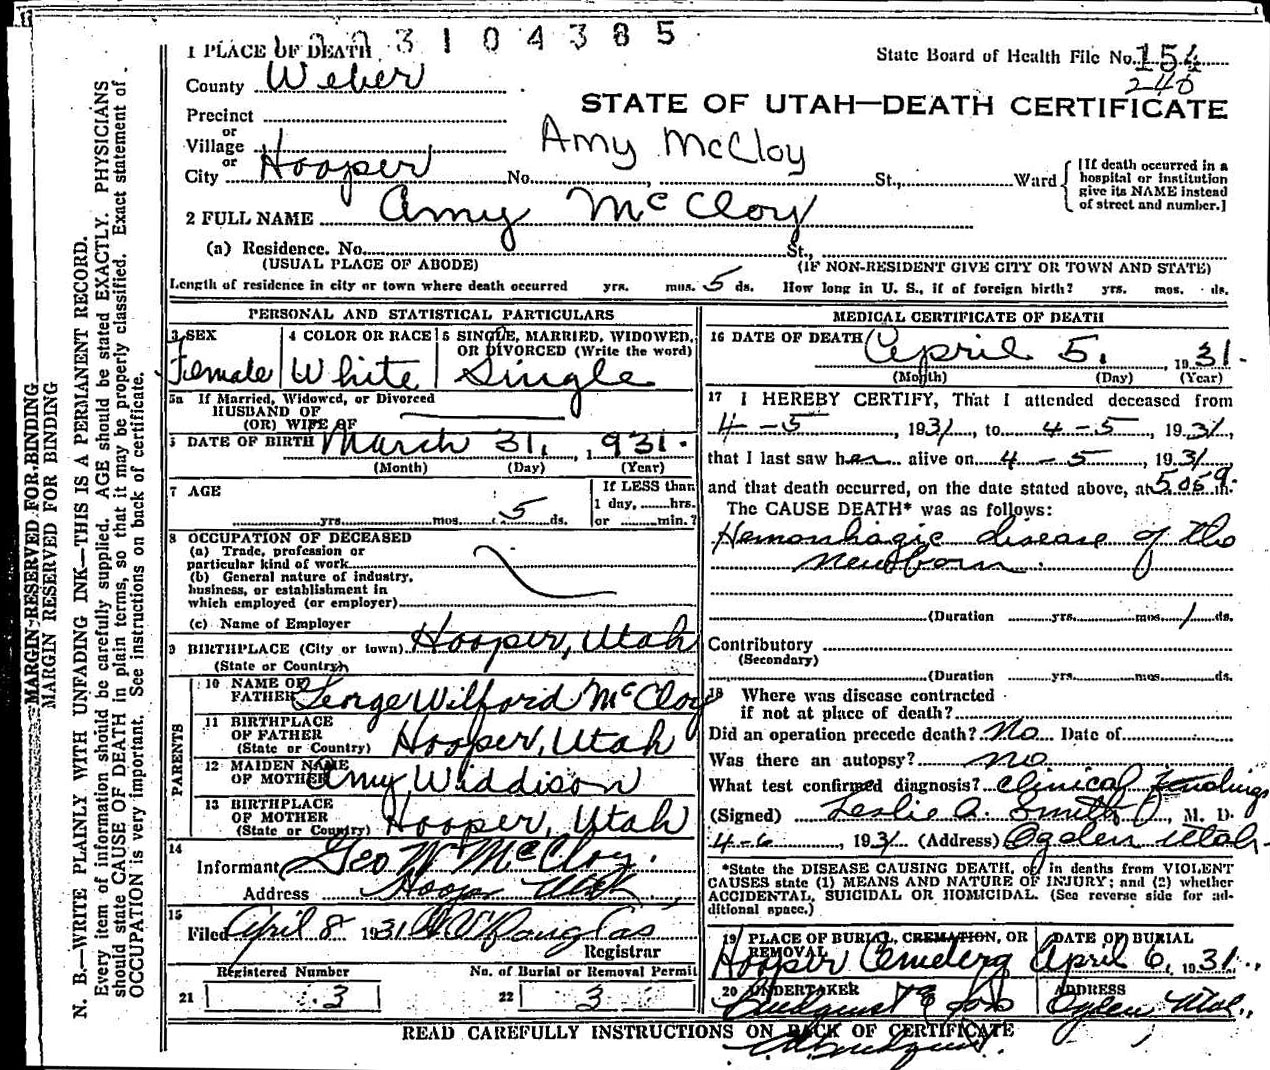 3104385
1 PLACE OF DEATH
State Board of Health File No. 154
240
County Weber
STATE OF UTAH—DEATH CERTIFICATE
Precinct
or
Village
Amy McCloy
or
City Hooper No. St., Ward
[If death occurred in a
hospital or institution
give its NAME instead
of street and number.]
2 FULL NAME Amy McCloy
(a) Residence. No. St.,
(USUAL PLACE OF ABODE) (IF NON-RESIDENT GIVE CITY OR TOWN AND STATE)
Length of residence in city or town where death occurred yrs. mos. 5 ds. How long in U. S., if of foreign birth? yrs. mos. ds.
PERSONAL AND STATISTICAL PARTICULARS
3 SEX
Female
4 COLOR OR RACE
White
5 SINGLE, MARRIED, WIDOWED,
OR DIVORCED (Write the word)
Single
5a If Married, Widowed, or Divorced
HUSBAND OF
(OR) WIFE OF
DATE OF BIRTH March 31, 1931.
(Month) (Day) (Year)
7 AGE
yrs. mos. 5 ds.
If LESS than
1 day, hrs.
or min.?
8 OCCUPATION OF DECEASED
(a) Trade, profession or
particular kind of work
(b) General nature of industry,
business, or establishment in
which employed (or employer)
(c) Name of Employer
9 BIRTHPLACE (City or town) Hooper, Utah
(State or Country)
PARENTS
10 NAME OF
FATHER George Wilford McCloy
11 BIRTHPLACE
OF FATHER
(State or Country) Hooper, Utah
12 MAIDEN NAME
OF MOTHER Amy Widdison
13 BIRTHPLACE
OF MOTHER
(State or Country) Hooper, Utah
14
Informant Geo W McCloy.
Address Hooper Utah
15
Filed April 8 1931
Registrar
Registered Number
21 3
No. of Burial or Removal Permit
22 3
MEDICAL CERTIFICATE OF DEATH
16 DATE OF DEATH April 5, 1931.
(Month) (Day) (Year)
17 I HEREBY CERTIFY, That I attended deceased from
4-5, 1931, to 4-5, 1931,
that I last saw her alive on 4-5, 1931
and that death occurred, on the date stated above, at
The CAUSE DEATH* was as follows:
Hemorrhagic disease of the
newborn.
(Duration yrs. mos. 1 ds.
Contributory
(Secondary)
(Duration yrs. mos. ds.
18 Where was disease contracted
if not at place of death?
Did an operation precede death? No Date of
Was there an autopsy? no
What test confirmed diagnosis? Clinical findings
(Signed) Leslie A. Smith, M. D.
4-6, 1931 (Address) Ogden Utah.
*State the DISEASE CAUSING DEATH, or in deaths from VIOLENT
CAUSES state (1) MEANS AND NATURE OF INJURY; and (2) whether
ACCIDENTAL, SUICIDAL OR HOMICIDAL. (See reverse side for ad-
ditional space.)
19 PLACE OF BURIAL, CREMATION, OR
REMOVAL
Hooper Cemetery
DATE OF BURIAL
April 6, 1931.
20 UNDERTAKER
Lindquist & Sons
ADDRESS
Ogden, Utah.
READ CAREFULLY INSTRUCTIONS ON BACK OF CERTIFICATE
MARGIN RESERVED FOR BINDING
MARGIN RESERVED FOR BINDING
N. B.—WRITE PLAINLY WITH UNFADING INK—THIS IS A PERMANENT RECORD.
Every item of information should be carefully supplied. AGE should be stated EXACTLY. PHYSICIANS
should state CAUSE OF DEATH in plain terms, so that it may be properly classified. Exact statement of
OCCUPATION is very important. See instructions on back of certificate.